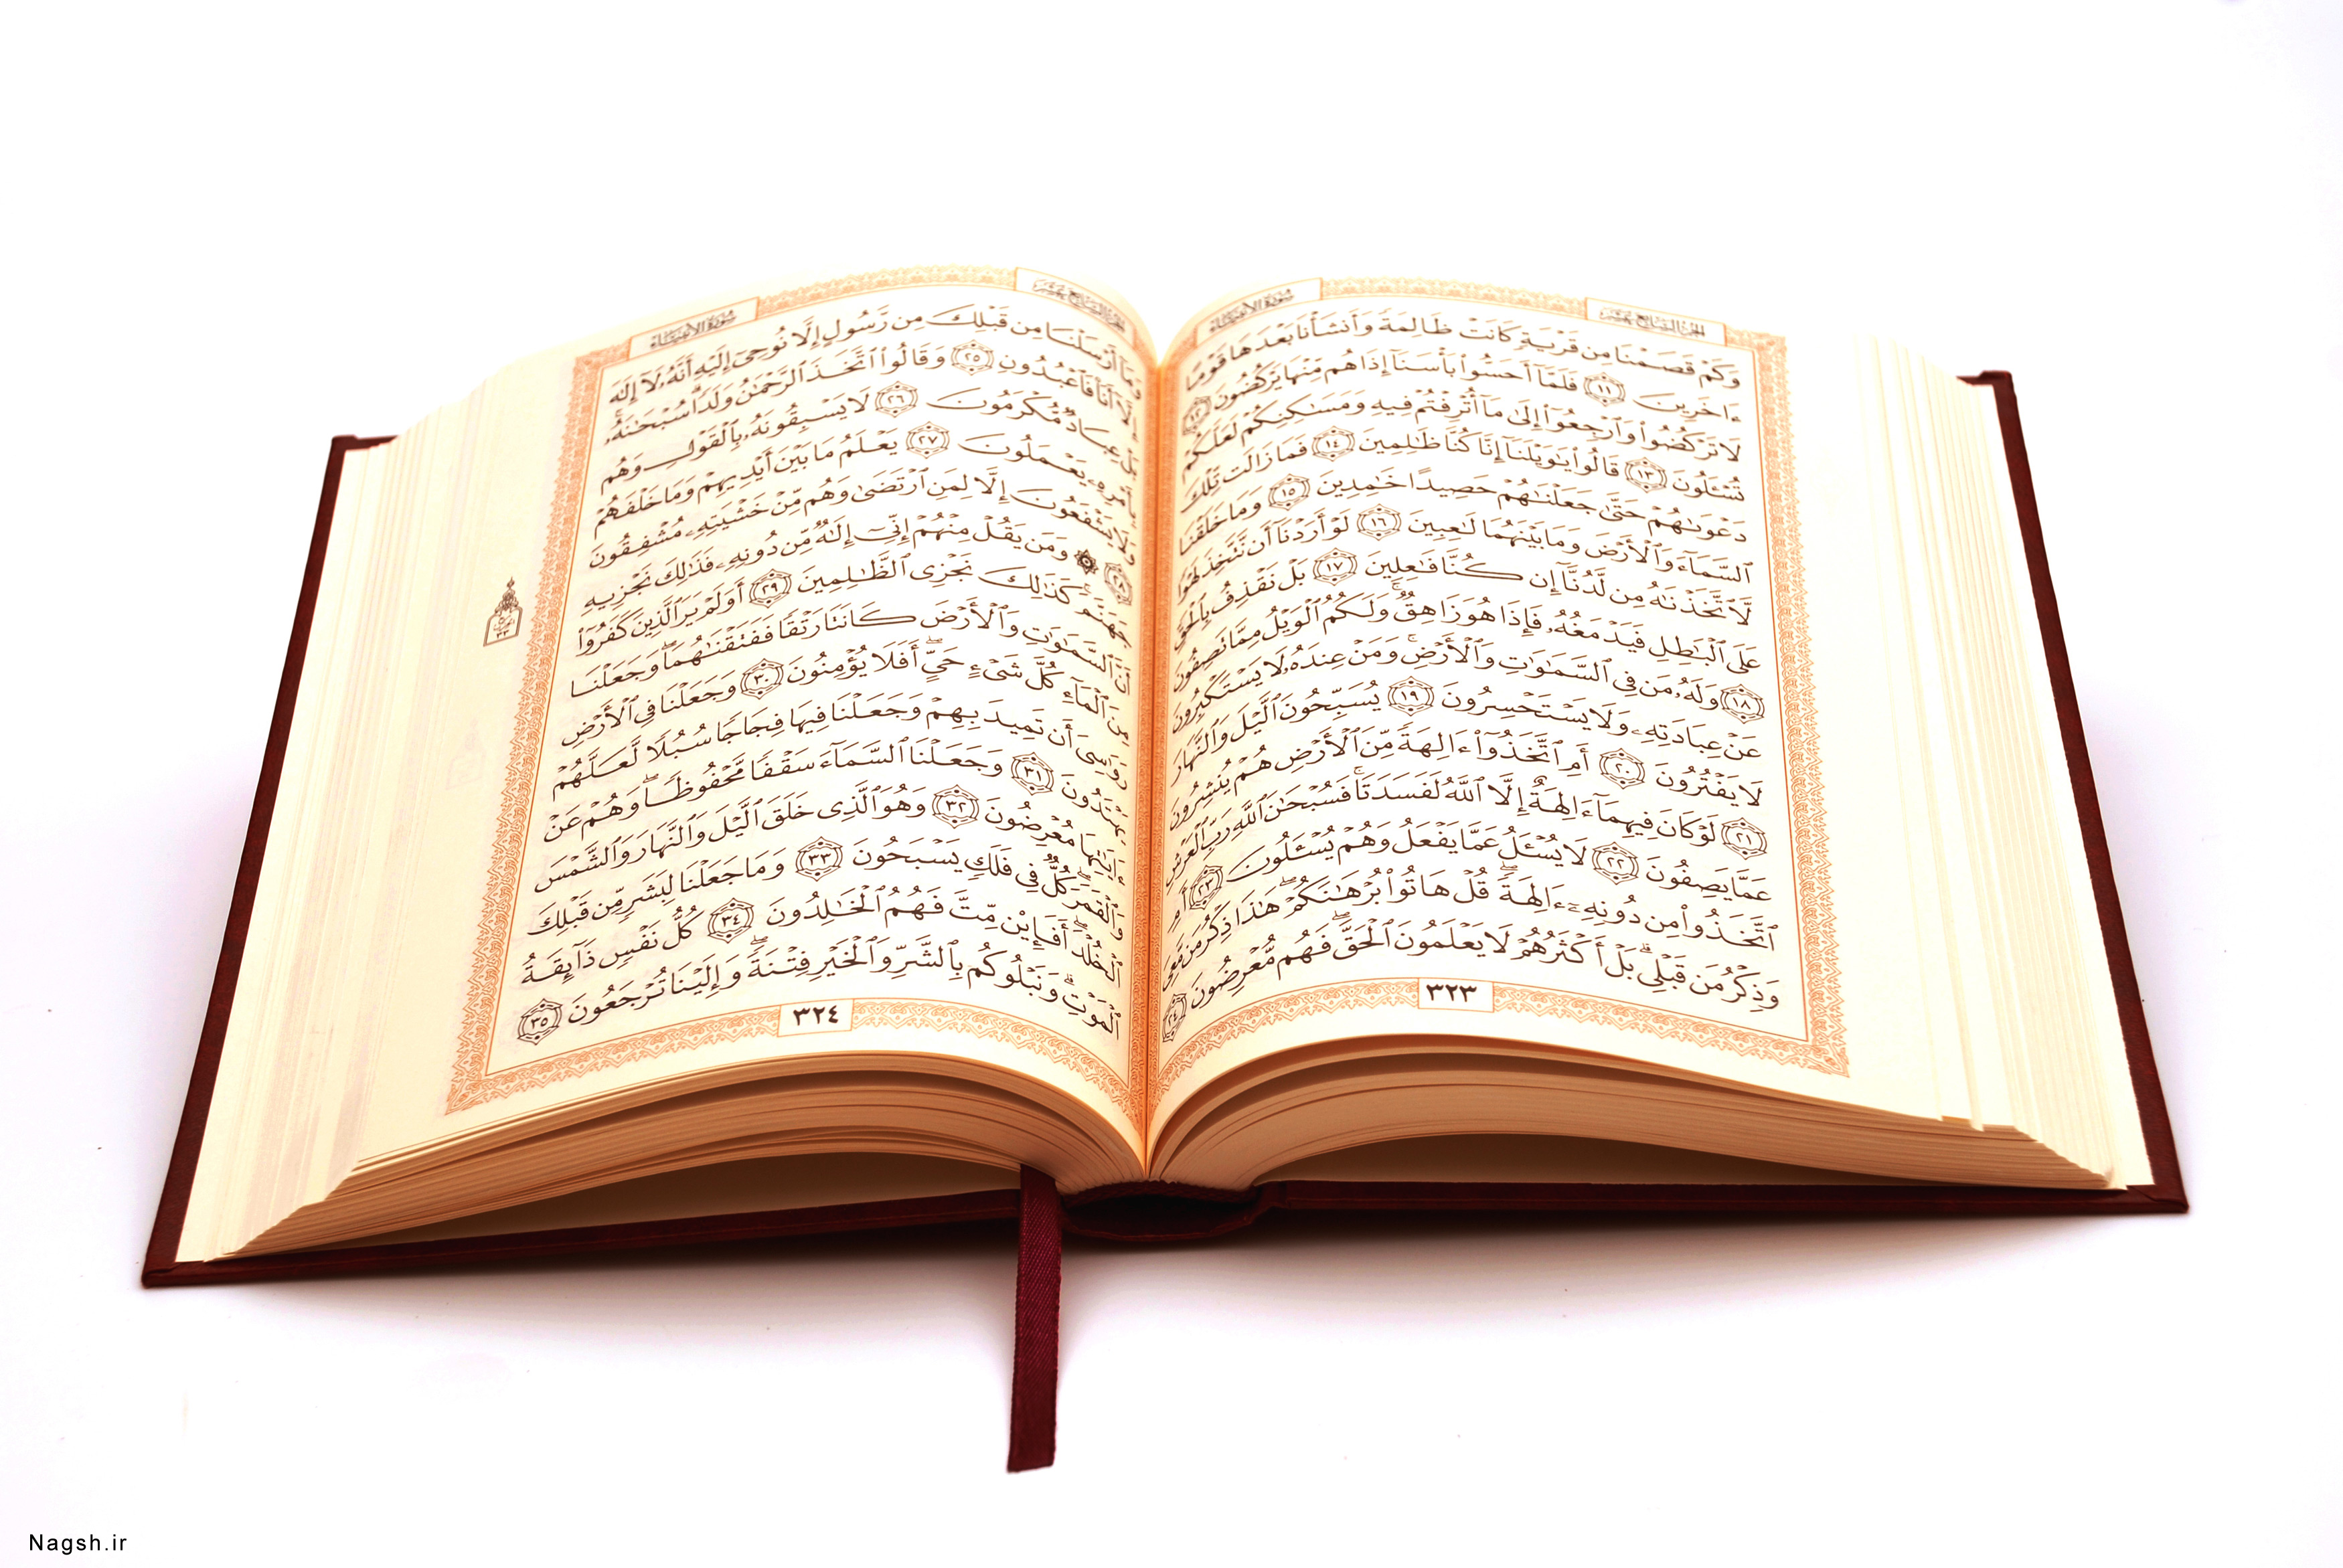 الجزء السابع عشر
سورة الأنبياء
وَكَمْ قَصَمْنَا مِن قَرْيَةٍ كَانَتْ ظَالِمَةً وَأَنشَأْنَا بَعْدَهَا قَوْمًا
ءَاخَرِينَ ۝١١ فَلَمَّآ أَحَسُّوا۟ بَأْسَنَآ إِذَا هُم مِّنْهَا يَرْكُضُونَ ۝١٢
لَا تَرْكُضُوا۟ وَٱرْجِعُوٓا۟ إِلَىٰ مَآ أُتْرِفْتُمْ فِيهِ وَمَسَـٰكِنِكُمْ لَعَلَّكُمْ
تُسْـَٔلُونَ ۝١٣ قَالُوا۟ يَـٰوَيْلَنَآ إِنَّا كُنَّا ظَـٰلِمِينَ ۝١٤ فَمَا زَالَت تِّلْكَ
دَعْوَىٰهُمْ حَتَّىٰ جَعَلْنَـٰهُمْ حَصِيدًا خَـٰمِدِينَ ۝١٥ وَمَا خَلَقْنَا
ٱلسَّمَآءَ وَٱلْأَرْضَ وَمَا بَيْنَهُمَا لَـٰعِبِينَ ۝١٦ لَوْ أَرَدْنَآ أَن نَّتَّخِذَ لَهْوًا
لَّٱتَّخَذْنَـٰهُ مِن لَّدُنَّآ إِن كُنَّا فَـٰعِلِينَ ۝١٧ بَلْ نَقْذِفُ بِٱلْحَقِّ
عَلَى ٱلْبَـٰطِلِ فَيَدْمَغُهُۥ فَإِذَا هُوَ زَاهِقٌ ۚ وَلَكُمُ ٱلْوَيْلُ مِمَّا تَصِفُونَ
۝١٨ وَلَهُۥ مَن فِى ٱلسَّمَـٰوَٰتِ وَٱلْأَرْضِ ۚ وَمَنْ عِندَهُۥ لَا يَسْتَكْبِرُونَ
عَنْ عِبَادَتِهِۦ وَلَا يَسْتَحْسِرُونَ ۝١٩ يُسَبِّحُونَ ٱلَّيْلَ وَٱلنَّهَارَ
لَا يَفْتُرُونَ ۝٢٠ أَمِ ٱتَّخَذُوٓا۟ ءَالِهَةً مِّنَ ٱلْأَرْضِ هُمْ يُنشِرُونَ
۝٢١ لَوْ كَانَ فِيهِمَآ ءَالِهَةٌ إِلَّا ٱللَّهُ لَفَسَدَتَا ۚ فَسُبْحَـٰنَ ٱللَّهِ رَبِّ ٱلْعَرْشِ
عَمَّا يَصِفُونَ ۝٢٢ لَا يُسْـَٔلُ عَمَّا يَفْعَلُ وَهُمْ يُسْـَٔلُونَ ۝٢٣ أَمِ
ٱتَّخَذُوا۟ مِن دُونِهِۦٓ ءَالِهَةً ۖ قُلْ هَاتُوا۟ بُرْهَـٰنَكُمْ ۖ هَـٰذَا ذِكْرُ مَن مَّعِىَ
وَذِكْرُ مَن قَبْلِى ۗ بَلْ أَكْثَرُهُمْ لَا يَعْلَمُونَ ٱلْحَقَّ ۖ فَهُم مُّعْرِضُونَ ۝٢٤
٣٢٣
الجزء السابع عشر
سورة الأنبياء
وَمَآ أَرْسَلْنَا مِن قَبْلِكَ مِن رَّسُولٍ إِلَّا نُوحِىٓ إِلَيْهِ أَنَّهُۥ لَآ إِلَـٰهَ
إِلَّآ أَنَا۠ فَٱعْبُدُونِ ۝٢٥ وَقَالُوا۟ ٱتَّخَذَ ٱلرَّحْمَـٰنُ وَلَدًا ۗ سُبْحَـٰنَهُۥ ۚ
بَلْ عِبَادٌ مُّكْرَمُونَ ۝٢٦ لَا يَسْبِقُونَهُۥ بِٱلْقَوْلِ وَهُم
بِأَمْرِهِۦ يَعْمَلُونَ ۝٢٧ يَعْلَمُ مَا بَيْنَ أَيْدِيهِمْ وَمَا خَلْفَهُمْ
وَلَا يَشْفَعُونَ إِلَّا لِمَنِ ٱرْتَضَىٰ وَهُم مِّنْ خَشْيَتِهِۦ مُشْفِقُونَ
۝٢٨ ۞ وَمَن يَقُلْ مِنْهُمْ إِنِّىٓ إِلَـٰهٌ مِّن دُونِهِۦ فَذَٰلِكَ نَجْزِيهِ
جَهَنَّمَ ۚ كَذَٰلِكَ نَجْزِى ٱلظَّـٰلِمِينَ ۝٢٩ أَوَلَمْ يَرَ ٱلَّذِينَ كَفَرُوٓا۟
أَنَّ ٱلسَّمَـٰوَٰتِ وَٱلْأَرْضَ كَانَتَا رَتْقًا فَفَتَقْنَـٰهُمَا ۖ وَجَعَلْنَا
مِنَ ٱلْمَآءِ كُلَّ شَىْءٍ حَىٍّ ۖ أَفَلَا يُؤْمِنُونَ ۝٣٠ وَجَعَلْنَا فِى ٱلْأَرْضِ
رَوَٰسِىَ أَن تَمِيدَ بِهِمْ وَجَعَلْنَا فِيهَا فِجَاجًا سُبُلًا لَّعَلَّهُمْ
يَهْتَدُونَ ۝٣١ وَجَعَلْنَا ٱلسَّمَآءَ سَقْفًا مَّحْفُوظًا ۖ وَهُمْ عَنْ
ءَايَـٰتِهَا مُعْرِضُونَ ۝٣٢ وَهُوَ ٱلَّذِى خَلَقَ ٱلَّيْلَ وَٱلنَّهَارَ وَٱلشَّمْسَ
وَٱلْقَمَرَ ۖ كُلٌّ فِى فَلَكٍ يَسْبَحُونَ ۝٣٣ وَمَا جَعَلْنَا لِبَشَرٍ مِّن قَبْلِكَ
ٱلْخُلْدَ ۖ أَفَإِي۟ن مِّتَّ فَهُمُ ٱلْخَـٰلِدُونَ ۝٣٤ كُلُّ نَفْسٍ ذَآئِقَةُ
ٱلْمَوْتِ ۗ وَنَبْلُوكُم بِٱلشَّرِّ وَٱلْخَيْرِ فِتْنَةً ۖ وَإِلَيْنَا تُرْجَعُونَ ۝٣٥
٣٢٤
Nagsh.ir